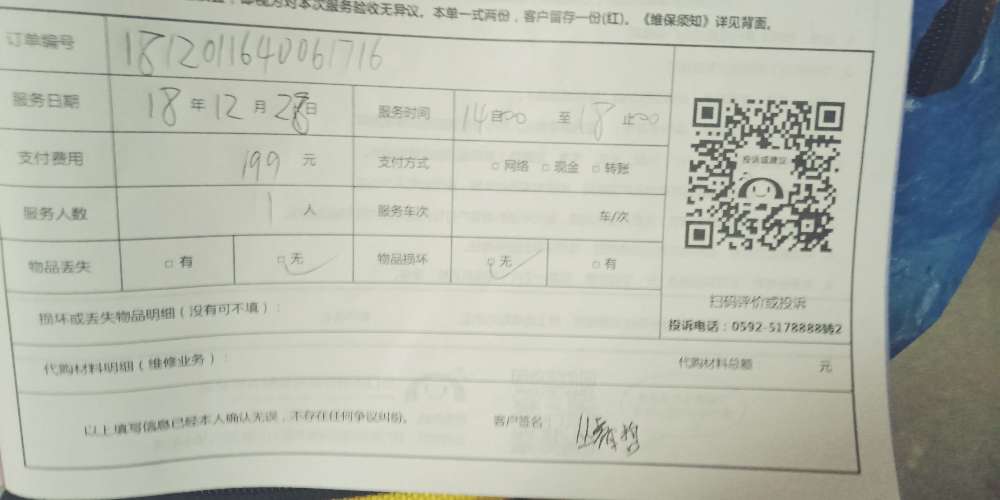 即视为对本次服务验收无异议。本单一式两份，客户留存一份(红)。《维保须知》详见背面。
订单编号 1812011640061716
服务日期 18 年 12 月 28 日 服务时间 14 自00 至 18 止00
支付费用 199 元 支付方式 □ 网络 □ 现金 □ 转账
服务人数 1 人 服务车次 车/次
物品丢失 □ 有 □ 无 物品损坏 □ 无 □ 有
投诉或建议
扫码评价或投诉
损坏或丢失物品明细（没有可不填）：
投诉电话：0592-5178888转2
代购材料明细（维修业务）： 代购材料总额 元
以上填写信息已经本人确认无误，不存在任何争议纠纷。 客户签名：